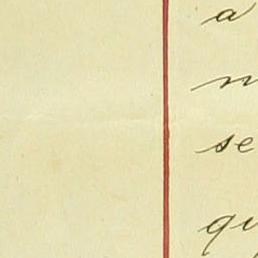 a
n
se
qu